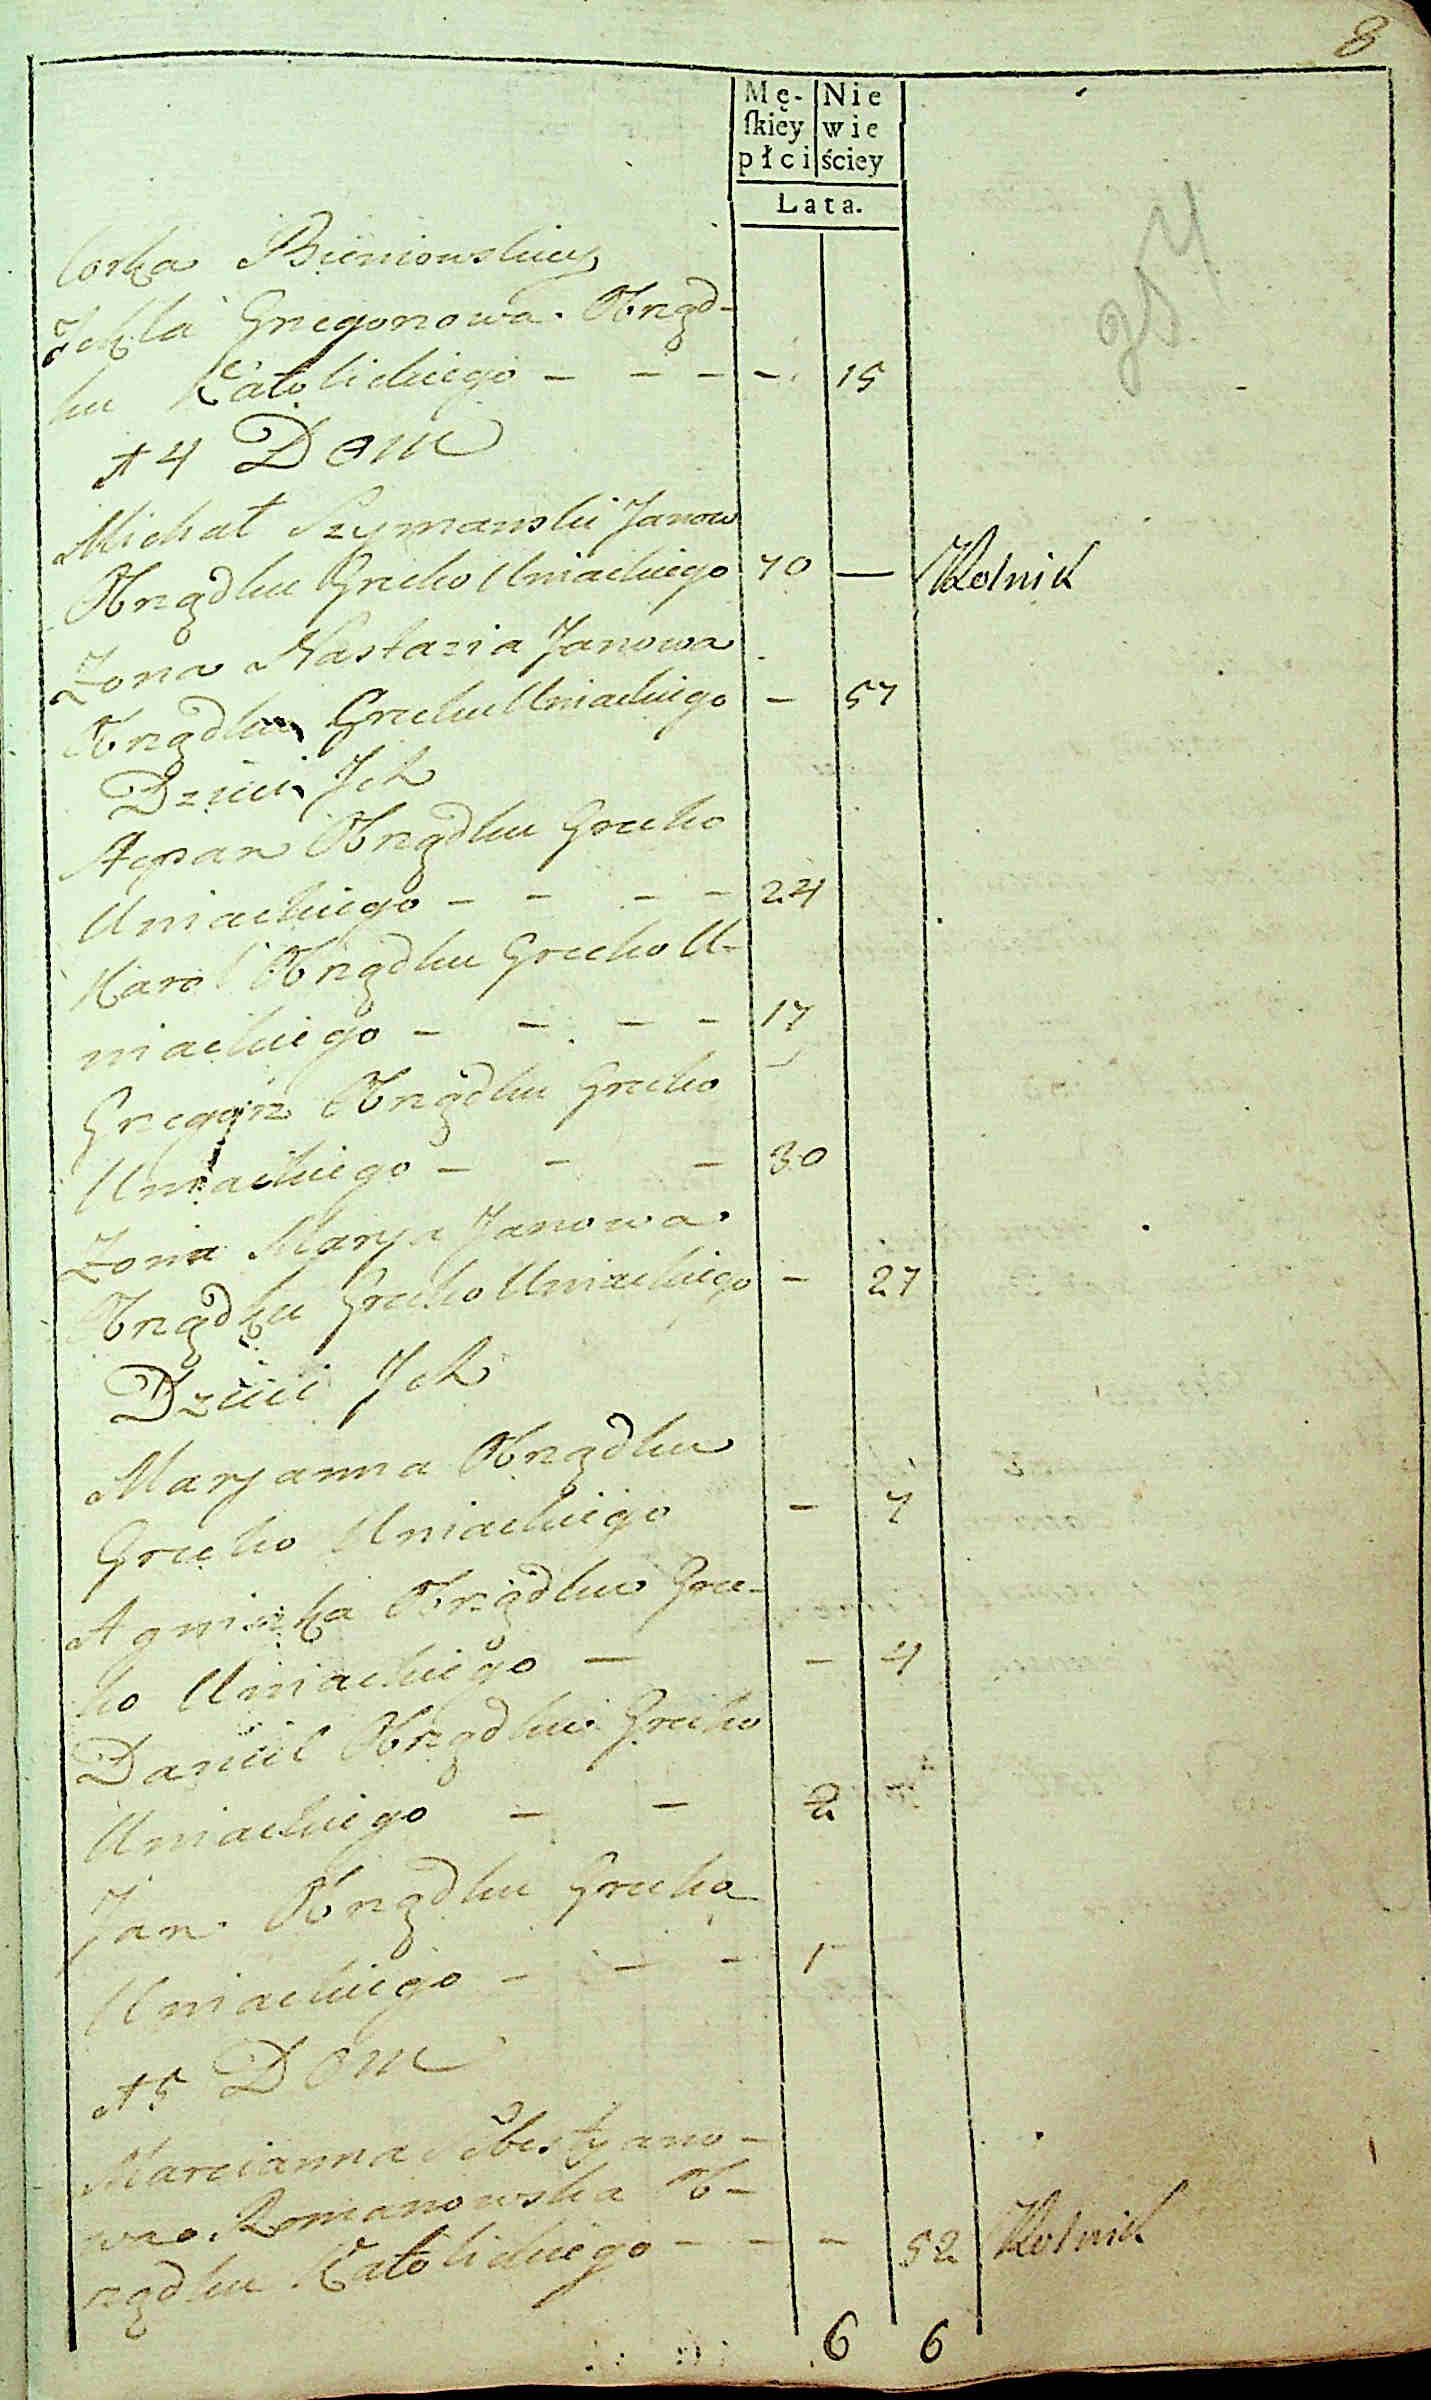 8
Mę- Nie
ſkiey wie
płci ściey
Lata.
Corka Bieniowskiey
Tekla Gregorowa Obrząd-
ku Katolickiego - - - - 15
№ 4 Dom
Michał Szymanski Janow
Obrządku Greko Uniackiego 70 — Rolnik
Zona Nastazia Janowa
Obrządku Greko Uniackiego - 57
Dzieci Ich
Stepan Obrządku Greko
Uniackiego - - - - 24
Karol Obrządku Greko U-
niackiego - - - - 17
Gregorz Obrządku Greko
Uniackiego - - - 30
Zona Marya Janowa
Obrządku Greko Uniackiego - 27
Dzieci Ich
Maryanna Obrządku
Greko Uniackiego - 7
Agnieszka Obrządku Gre-
ko Uniackiego - - 4
Daniel Obrządku Greko
Uniackiego - - 2
Jan Obrządku Greko
Uniackiego - - - 1
№ 5 Dom
Marcianna Sebestyano-
wna Romanowska Ob-
rządku Katolickiego - - - 52 Rolnik
6 6